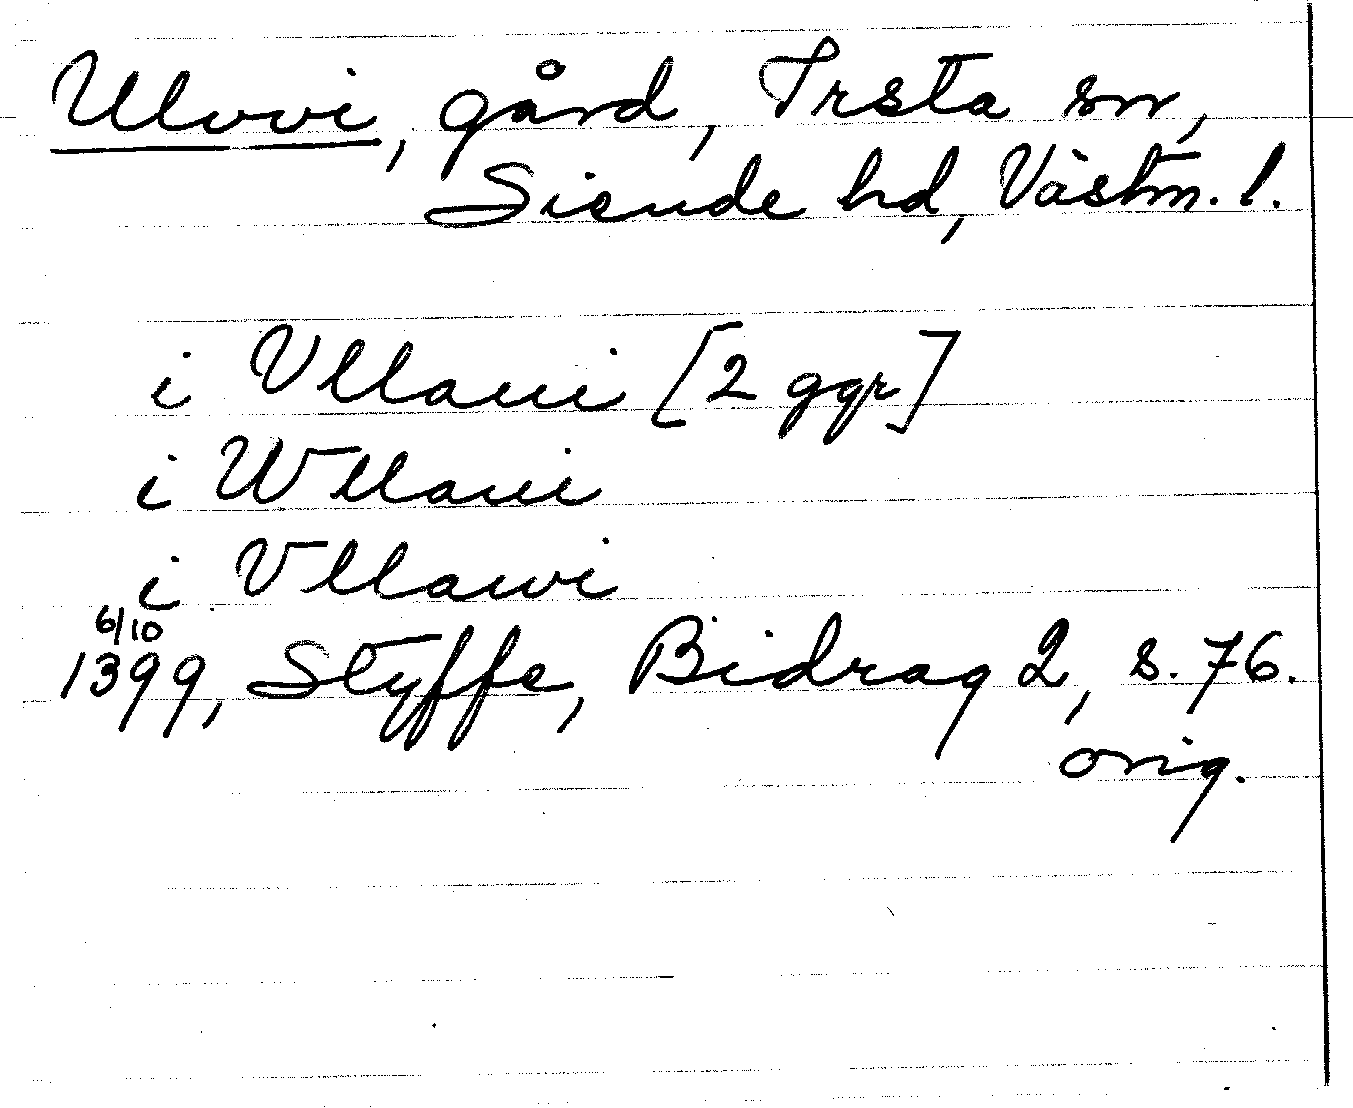 Ulvvi, gård, Irsta sn,
Siende hd, Västm. l.
i Vllaui [2 ggr]
i Wllaui
i Vllawi
6/10
1399, Styffe, Bidrag 2, s. 76.
orig.